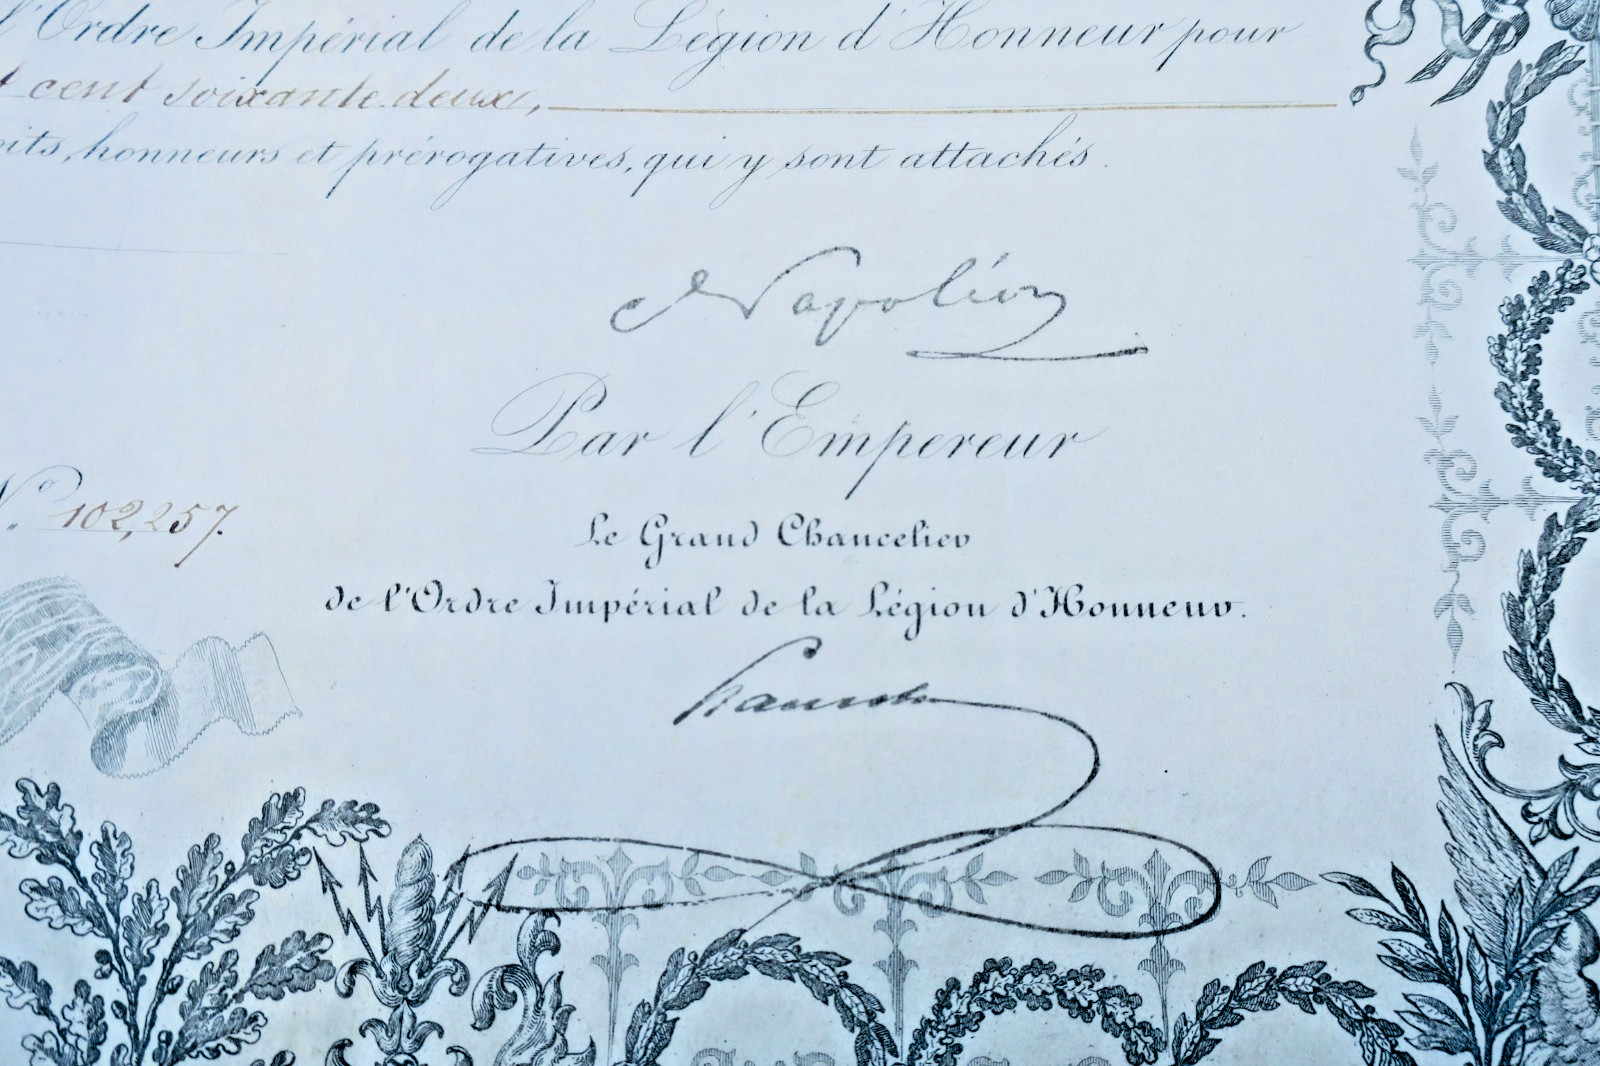 l'Ordre Impérial de la Légion d'Honneur pour
cent soixante-deux,
oits, honneurs et prérogatives, qui y sont attachés.
Napoléon
Par l'Empereur
N.º 102,257.
Le Grand Chancelier
de l'Ordre Impérial de la Légion d'Honneur.